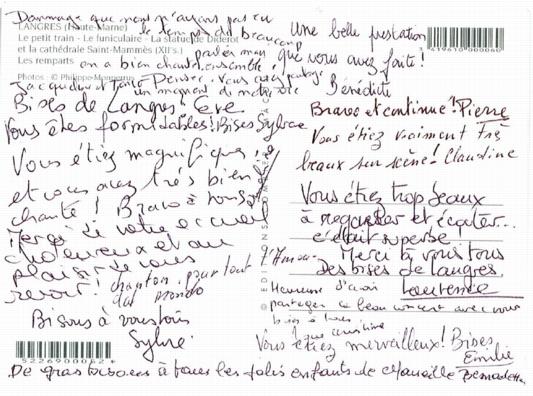 Dommage que nous n'ayons pas eu
le temps de beaucoup
parler mais
on a bien chanté ensemble !
LANGRES (Haute-Marne)
Le petit train - Le funiculaire - La statue de Diderot
et la cathédrale Saint-Mammès (XIIe s.)
Les remparts
Photos : © Philippe
Jacqueline et
Penser, vous avez partagé
un moment di
Bises de Langres Eve
Vous êtes formidables ! Bises Sylvie
Vous étiez magnifiques,
et vous avez très bien
chanté ! Bravo à tous
Merci de votre accueil
chaleureux et au
plaisir de vous
revoir !
chantons pour tout l'Amour
du monde
Bisous à vous tous
Sylvie
5226900062
Une belle prestation
que vous avez faite !
Bénédicte
419610000060
Bravo et continuez ! Pierre
Vous étiez vraiment très
beaux sur scène ! Claudine
Vous étiez trop beaux
à regarder et écouter...
c'était superbe
Merci à vous tous
Des bises de Langres,
Laurence
Heureuse d'avoir
partagé ce beau concert avec vous
bises à tous
Vous étiez merveilleux ! Bises
Emilie
De gros bisous à tous les jolis enfants de Marseille Bernadette
EDITIONS